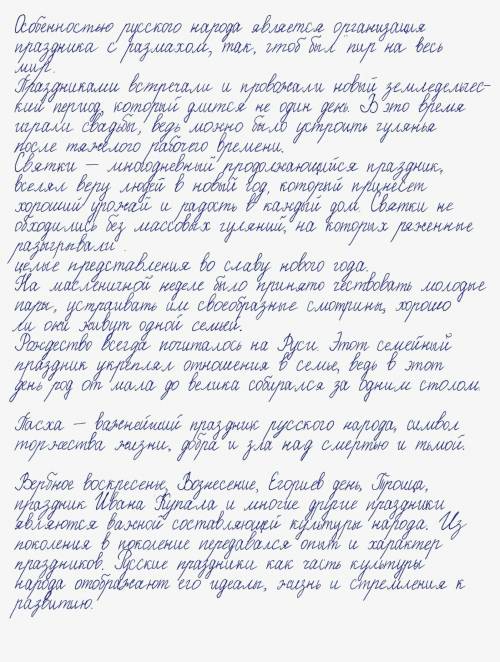 Особенностью русского народа является организация
праздника с размахом, так, чтоб был "пир на весь
мир".
Праздниками встречали и провожали новый земледельчес-
кий период, который длится не один день. В это время
играли свадьбы, ведь можно было устроить гулянья
после тяжелого рабочего времени.
Святки – многодневный, продолжающийся праздник,
вселял веру людей в новый год, который принесет
хороший урожай и радость в каждый дом. Святки не
обходились без массовых гуляний, на которых ряженные
разыгрывали
целые представления во славу нового года.
На масленичной неделе было принято чествовать молодые
пары, устраивать им своеобразные смотрины, хорошо
ли они живут одной семьей.
Рождество всегда почиталось на Руси. Этот семейный
праздник укреплял отношения в семье, ведь в этот
день род от мала до велика собирался за одним столом.
Пасха – важнейший праздник русского народа, символ
торжества жизни, добра и зла над смертью и тьмой.
Вербное воскресенье, Вознесение, Егориев день, Троица,
праздник Ивана Купала и многие другие праздники
являются важной составляющей культуры народа. Из
поколения в поколение передавался опыт и характер
праздников. Русские праздники как часть культуры
народа отображают его идеалы, жизнь и стремления к
развитию.